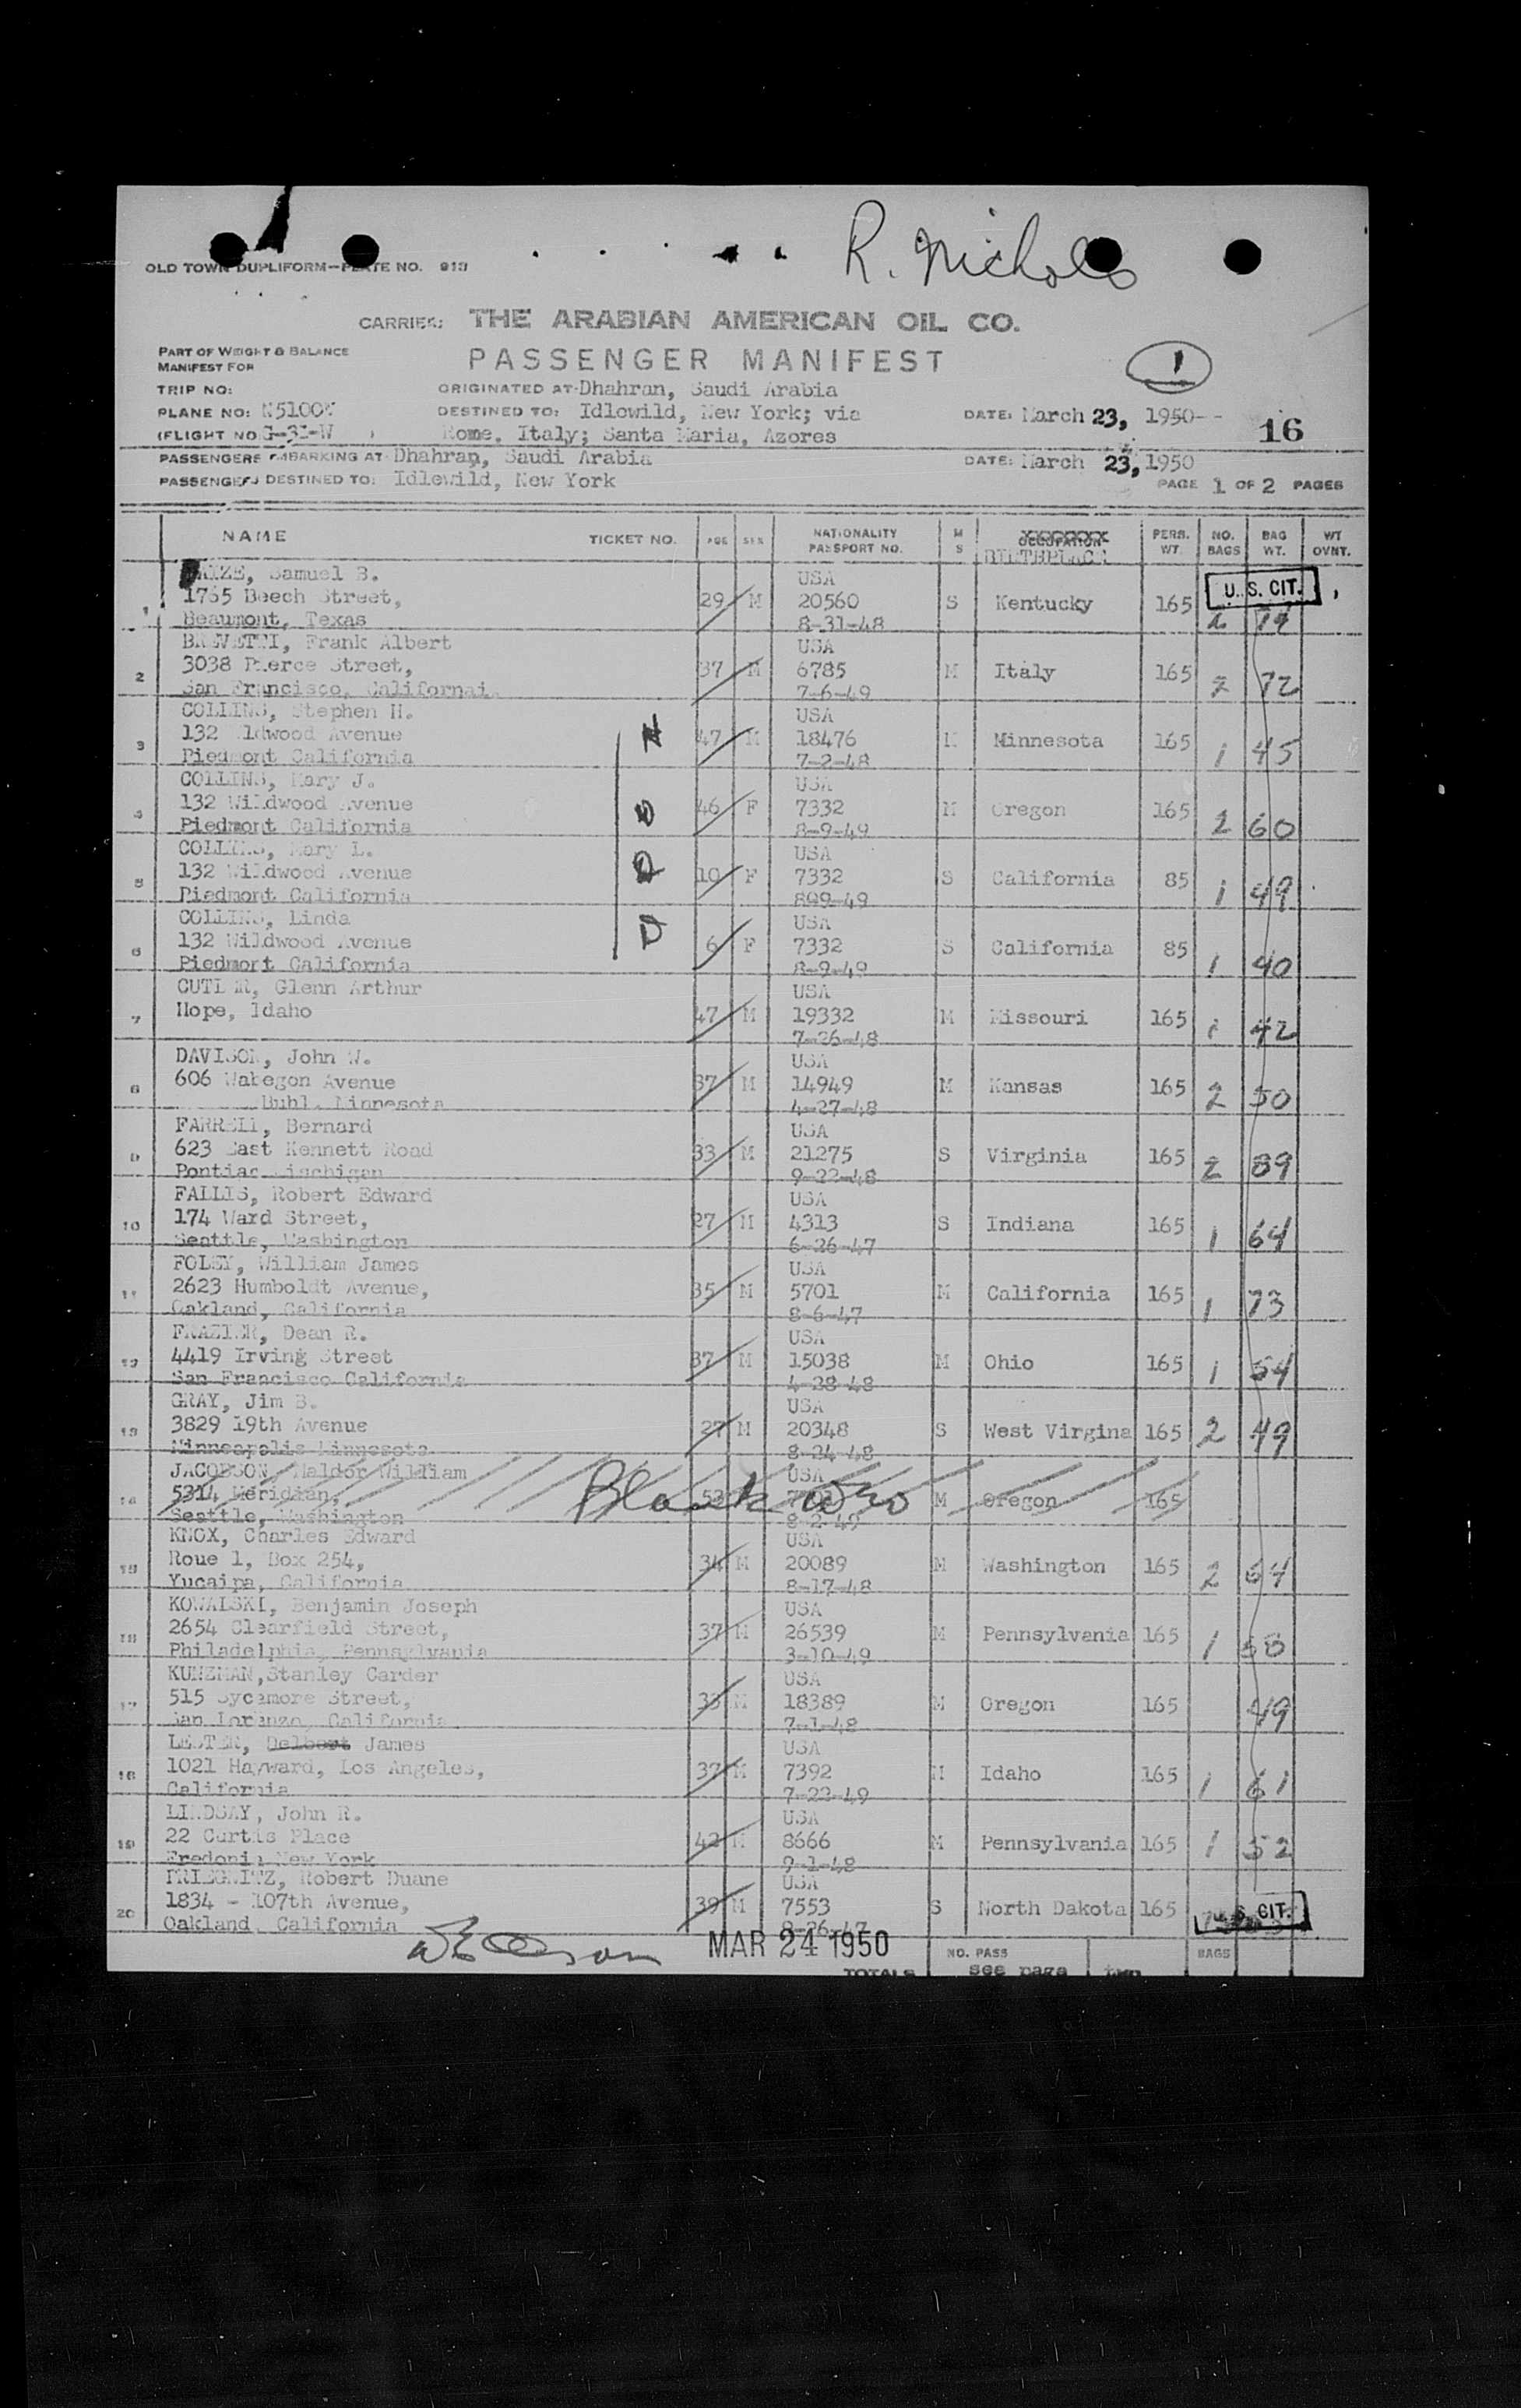 R. Nichols
OLD TOWN DUPLIFORM—PLATE NO. 913
CARRIER: THE ARABIAN AMERICAN OIL CO.
PART OF WEIGHT & BALANCE
MANIFEST FOR
PASSENGER MANIFEST
1
TRIP NO:
ORIGINATED AT Dhahran, Saudi Arabia
PLANE NO:
DESTINED TO: Idlewild, New York; via
DATE: March 23, 1950--
16
(FLIGHT NO G-31-W )
Rome, Italy; Santa Maria, Azores
PASSENGERS EMBARKING AT Dhahran, Saudi Arabia
DATE: March 23, 1950
PASSENGERS DESTINED TO: Idlewild, New York
PAGE 1 OF 2 PAGES
NAME TICKET NO. AGE SEX NATIONALITY PASSPORT NO. M S OCCUPATION BIRTHPLACE PERS. WT. NO. BAGS BAG WT. WT OVNT.
Samuel B. USA
1 1765 Beech Street, 29 M 20560 S Kentucky 165 U. S. CIT.
Beaumont, Texas 8-31-48
Frank Albert USA
2 3038 Pierce Street, 37 M 6785 M Italy 165 2 72
San Francisco, Californai 7-6-49
COLLINS, Stephen H. USA
3 132 Wildwood Avenue 47 M 18476 M Minnesota 165 1 45
Piedmont California 7-2-48
COLLINS, Mary J. USA
4 132 Wildwood Avenue 46 F 7332 M Oregon 165 2 60
Piedmont California 8-9-49
COLLINS, Mary L. USA
5 132 Wildwood Avenue 10 F 7332 S California 85 1 49
Piedmont California 899-49
COLLINS, Linda USA
6 132 Wildwood Avenue 6 F 7332 S California 85 1 40
Piedmont California 8-9-49
CUTLER, Glenn Arthur USA
7 Hope, Idaho 47 M 19332 M Missouri 165 1 42
7-26-48
DAVISON, John W. USA
8 606 Wabegon Avenue 37 M 14949 M Kansas 165 2 50
Buhl, Minnesota 4-27-48
FARRELL, Bernard USA
9 623 East Kennett Road 33 M 21275 S Virginia 165 2 89
Pontiac 9-22-48
FALLIS, Robert Edward USA
10 174 Ward Street, 27 M 4313 S Indiana 165 1 64
Seattle, Washington 6-26-47
FOLEY, William James USA
11 2623 Humboldt Avenue, 35 M 5701 M California 165 1 73
Oakland, California 8-6-47
FRAZIER, Dean R. USA
12 4419 Irving Street 37 M 15038 M Ohio 165 1 54
San Francisco California 4-28-48
GRAY, Jim B. USA
13 3829 19th Avenue 27 M 20348 S West Virgina 165 2 49
Minneapolis Minnesota 8-24-48
JACOBSON, Haldor William USA
14 5314 Meridian, M Oregon 165
Seattle, Washington 8-2-49
KNOX, Charles Edward USA
15 Roue 1, Box 254, 34 M 20089 M Washington 165 2 64
Yucaipa, California 8-17-48
KOWALSKI, Benjamin Joseph USA
16 2654 Clearfield Street, 37 M 26539 M Pennsylvania 165 1
Philadelphia, Pennsylvania 3-10-49
KUNZMAN, Stanley Carder USA
17 515 Sycamore Street, 33 M 18389 M Oregon 165 49
San Lorenzo, California 7-1-48
LESTER, Delbert James USA
18 1021 Hayward, Los Angeles, 37 M 7392 M Idaho 165 1 61
California 7-22-49
LINDSAY, John R. USA
19 22 Curtis Place 42 M 8666 M Pennsylvania 165 1 52
Fredonia New York 9-1-48
Robert Duane USA
20 1834 - 107th Avenue, 39 M 7553 S North Dakota 165 U. S. CIT.
Oakland, California 8-26-47
MAR 24 1950
NO. PASS BAGS
TOTALS see page two